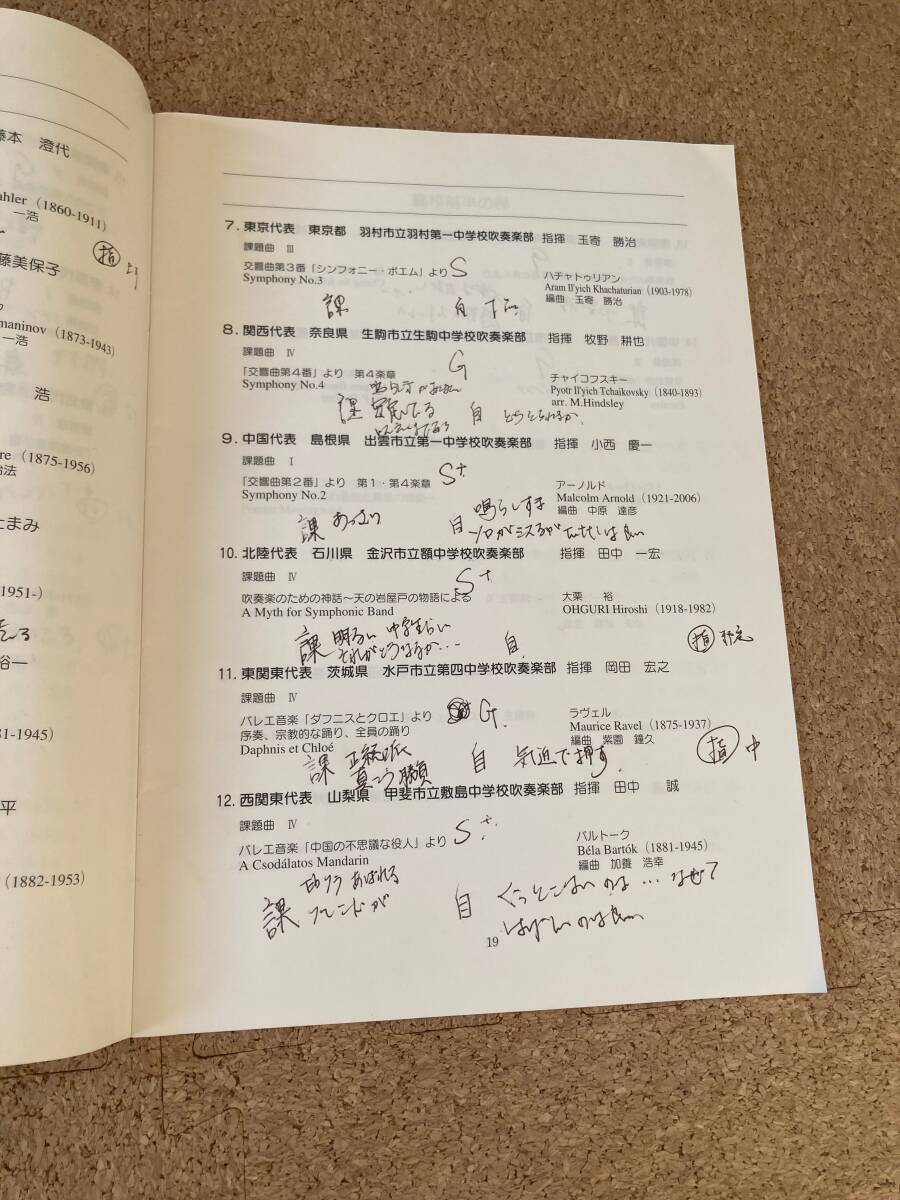 藤本 澄代
ahler (1860-1911)
一浩
指
藤美保子
maninov (1873-1943)
一浩
浩
re (1875-1956)
治法
たまみ
1951-)
谷一
81-1945)
平
(1882-1953)
7. 東京代表 東京都 羽村市立羽村第一中学校吹奏楽部 指揮 玉寄 勝治
課題曲 Ⅲ
交響曲第3番「シンフォニー・ポエム」より S ハチャトゥリアン
Symphony No.3 Aram Il'yich Khachaturian (1903-1978)
編曲 玉寄 勝治
課 自
8. 関西代表 奈良県 生駒市立生駒中学校吹奏楽部 指揮 牧野 耕也
課題曲 Ⅳ G
「交響曲第4番」より 第4楽章 チャイコフスキー
Symphony No.4 Pyotr Il'yich Tchaikovsky (1840-1893)
arr. M.Hindsley
課 自
9. 中国代表 島根県 出雲市立第一中学校吹奏楽部 指揮 小西 慶一
課題曲 Ⅰ S+
「交響曲第2番」より 第1・第4楽章 アーノルド
Symphony No.2 Malcolm Arnold (1921-2006)
編曲 中原 達彦
課 あっさり 自 鳴らしすぎ
10. 北陸代表 石川県 金沢市立額中学校吹奏楽部 指揮 田中 一宏
課題曲 Ⅳ S+
吹奏楽のための神話~天の岩屋戸の物語による 大栗 裕
A Myth for Symphonic Band OHGURI Hiroshi (1918-1982)
課 明るい 中学生らい 自 指
それがどうなるか…
11. 東関東代表 茨城県 水戸市立第四中学校吹奏楽部 指揮 岡田 宏之
課題曲 Ⅳ
バレエ音楽「ダフニスとクロエ」より G ラヴェル
序奏、宗教的な踊り、全員の踊り Maurice Ravel (1875-1937)
Daphnis et Chloé 編曲 紫園 鐘久
課 正統派 自 気迫で押す 指 中
真こう勝負
12. 西関東代表 山梨県 甲斐市立敷島中学校吹奏楽部 指揮 田中 誠
課題曲 Ⅳ
バレエ音楽「中国の不思議な役人」より S+ バルトーク
A Csodálatos Mandarin Béla Bartók (1881-1945)
編曲 加養 浩幸
あばれる
課 ブレンドが 自 なぜ?
19